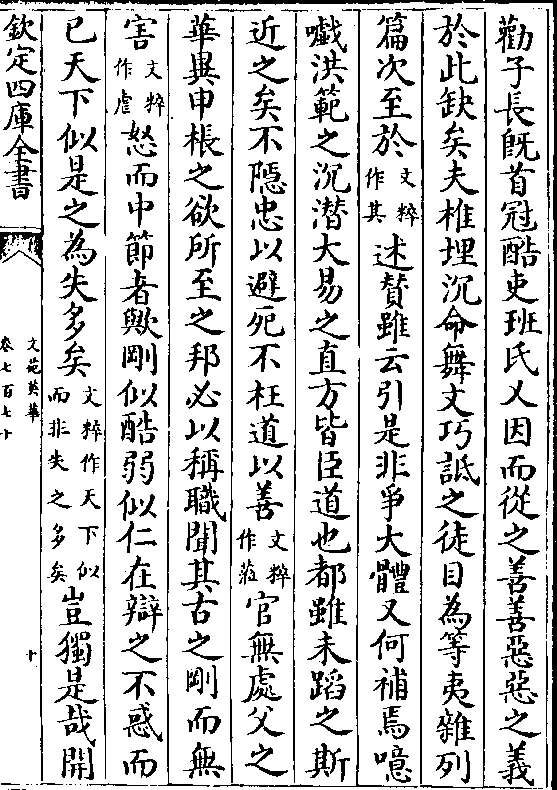 勸子長既首冠酷吏班氏乂因而從之善善惡惡之義
於此缺矣夫椎埋沉命舞文巧詆之徒目為等夷雜列
篇次至於文粹作其述賛雖云引是非爭大體又何補焉噫
嚱洪範之沉潛大易之直方皆臣道也都雖未蹈之斯
近之矣不隱忠以避死不枉道以善文粹作蒞官無處父之
華異申棖之欲所至之邦必以稱職聞其古之剛而無
害文粹作虐怒而中節者歟剛似酷弱似仁在辯之不惑而
已天下似是之為失多矣文粹作天下似而非失之多矣豈獨是哉開
欽定四庫全書
文苑英華
卷七百七十
十